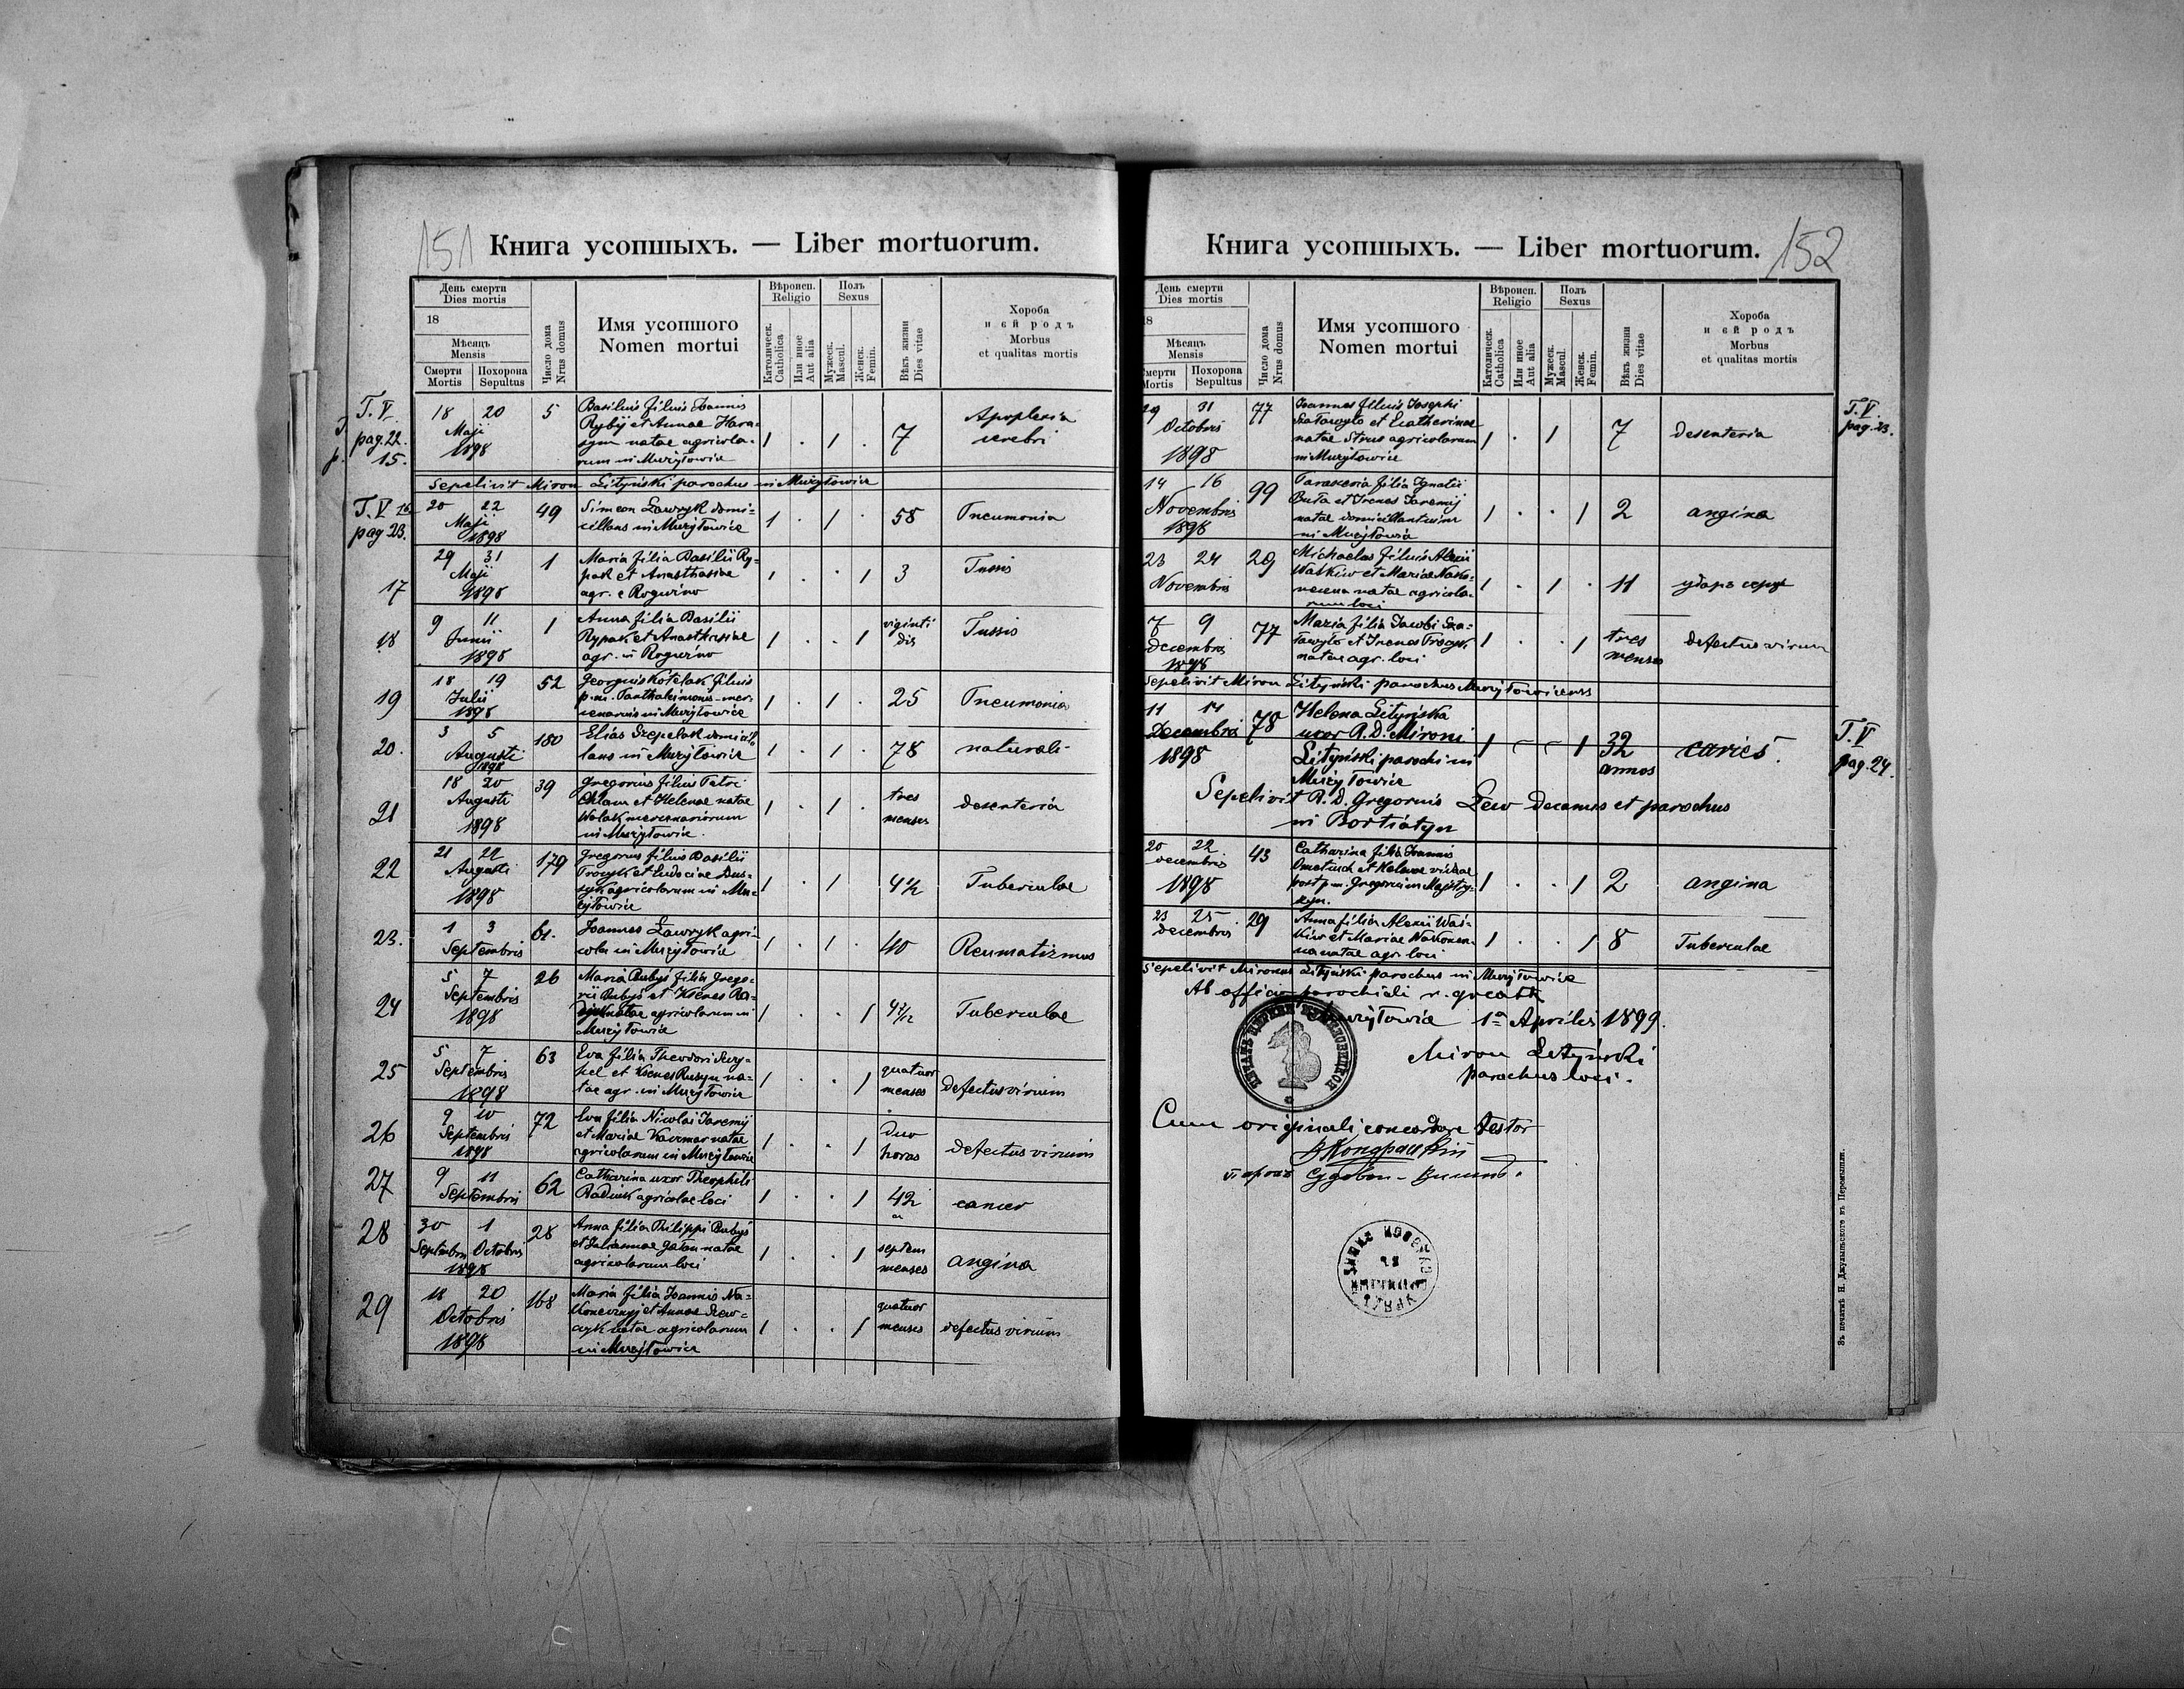 151
Книга усопшыхъ. — Liber mortuorum.
День смерти
Dies mortis
18
Мѣсяць
Mensis
Смерти
Mortis
Похорона
Sepultus
Число дома
Nrus domus
Имя усопшого
Nomen mortui
Вѣроисп.
Religio
Католическ.
Catholica
Или иное
Aut alia
Полъ
Sexus
Мужеск.
Mascul.
Женск.
Femin.
Вѣкъ жизни
Dies vitae
Хороба
и єй родъ
Morbus
et qualitas mortis
T. V
pag. 22.
15.
18 20
Maji
1898
5
Basilius filius Joannis
Rybij et Annae Hara-
sym natae agricola-
rum in Mużyłowice
1 . 1 .
7
Apoplexia
cerebri
Sepelivit Miron Lityński parochus in Mużyłowice
T. V 16
pag 23.
20 22
Maji
1898
49
Simeon Ławryk domi-
cillans in Mużyłowice
1 . 1 .
58
Pneumonia
17
29 31
Maji
1898
1
Maria filia Basilii Ry-
pak et Anasthasiae
agr. e Rogużno
1 . . 1
3
Tussis
18
9 11
Junii
1898
1
Anna filia Basilii
Rypak et Anasthasiae
agr. in Rogużno
1 . . 1
viginti
dies
Tussis
19
18 19
Julii
1898
52
Georgius Kotelak filius
p.m. Panthaleimonis mer-
cenarius in Mużyłowice
1 . 1 .
25
Pneumonia
20.
3 5
Augusti
1898
180
Elias Szepelak domicil-
lans in Mużyłowice
1 . 1 .
78
naturali
21
18 20
Augusti
1898
39
Gregorius filius Petri
Chlam et Helenae natae
Wolak mercenariorum
in Mużyłowice.
1 . 1 .
tres
menses
desenteria
22
21 22
Augusti
1898
179
Gregorius filius Basilii
Procyk et Eudociae Dus-
agricolarum in Mu-
żyłowice
1 . 1
4½
Tuberculae
23.
1 3
Septembris
61.
Joannes Ławryk agri-
cola in Mużyłowice
1 . 1 .
40
Reumatizmus
24
5 7
Septembris
1898
26
Maria Bubyś filia Grego-
rii Bubyś et Ksenes Ra-
natae agricolarum in
Mużyłowice
1 . . 1
Tuberculae
25
5 7
Septembris
1898
63
Eva filia Theodori
et Ksenes Rusyn na-
tae agr. in Mużyłowice
1 . . 1
quatuor
menses
defectus virium
26
9 10
Septembris
1898
72
Eva filia Nicolai Jaremij
et Mariae Kaczmar natae
agricolarum in Mużyłowice
1 . . 1
duo
horas
defectus virium
27
9 11
Septembris
62
Catharina uxor Theophili
Radiuk agricolae loci
1 . . 1
42
cancer
28
30 1
Septembris Octobris
1898
28
Anna filia Philippi Bubyś
et Juliannae Gałan natae
agricolarum loci
1 . . 1
septem
menses
angina
29
18 20
Octobris
1898
168
Maria filia Joannis Na-
konecznyj et Annae Szew-
czyk natae agricolarum
in Mużyłowice
1 . . 1
quatuor
menses
defectus virium
152
Книга усопшыхъ. — Liber mortuorum.
День смерти
Dies mortis
18
Мѣсяць
Mensis
Смерти
Mortis
Похорона
Sepultus
Число дома
Nrus domus
Имя усопшого
Nomen mortui
Вѣроисп.
Religio
Католическ.
Catholica
Или иное
Aut alia
Полъ
Sexus
Мужеск.
Mascul.
Женск.
Femin.
Вѣкъ жизни
Dies vitae
Хороба
и єй родъ
Morbus
et qualitas mortis
29 31
Octobris
1898
77
Joannes filius Josephi
Szaławyło et Catherinae
natae Strus agricolarum
in Mużyłowice
1 . 1
7
desenteria
T. V.
pag. 23.
14 16
Novembris
1898
99
Parascevia filia Ignatii
Buła et Irenes Jaremij
natae domicillantium
in Mużyłowice
1 . . 1
2
angina
23 24
Novembris
29
Michaelus filius Alexii
Waśkiw et Mariae Nako-
neczna natae agricola-
rum loci
1 . 1 .
11
ударъ серця
7 9
decembris
1898
77
Maria filia Jacobi Sza-
ławyło et Irenes Procyk
natae agr. loci
1 . . 1
tres
menses
defectus virium
Sepelivit Miron Lityński parochus Mużyłowicensis
11 14
Decembris
1898
78
Helena Lityńska
uxor R. D. Mironi
Lityński parochi in
Mużyłowice
1 1
32
annos
caries
T. V
pag. 24.
Sepelivit R. D. Gregorius Lew Decanus et parochus
in Bortiatyn
20 22
decembris
1898
43
Catharina filia Joannis
et Helenae viduae
post p.m. Gregorium
1 . . 1
2
angina
23 25
decembris
29
Anna filia Alexii Waś-
kiw et Mariae Nakonecz-
na natae agr. loci
1 . . 1
8
Tuberculae
Sepelivit Mironus Lityński parochus in Mużyłowice
Ab officio parochiali r. gr. cath.
Mużyłowice 1a Aprilis 1899.
Miron Lityński
parochus loci.
Cum originali concordare testor
Зъ печатнѣ И. Джулыньского въ Перемышли.